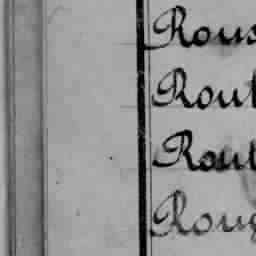 Rous
Rout
Rout
Roug